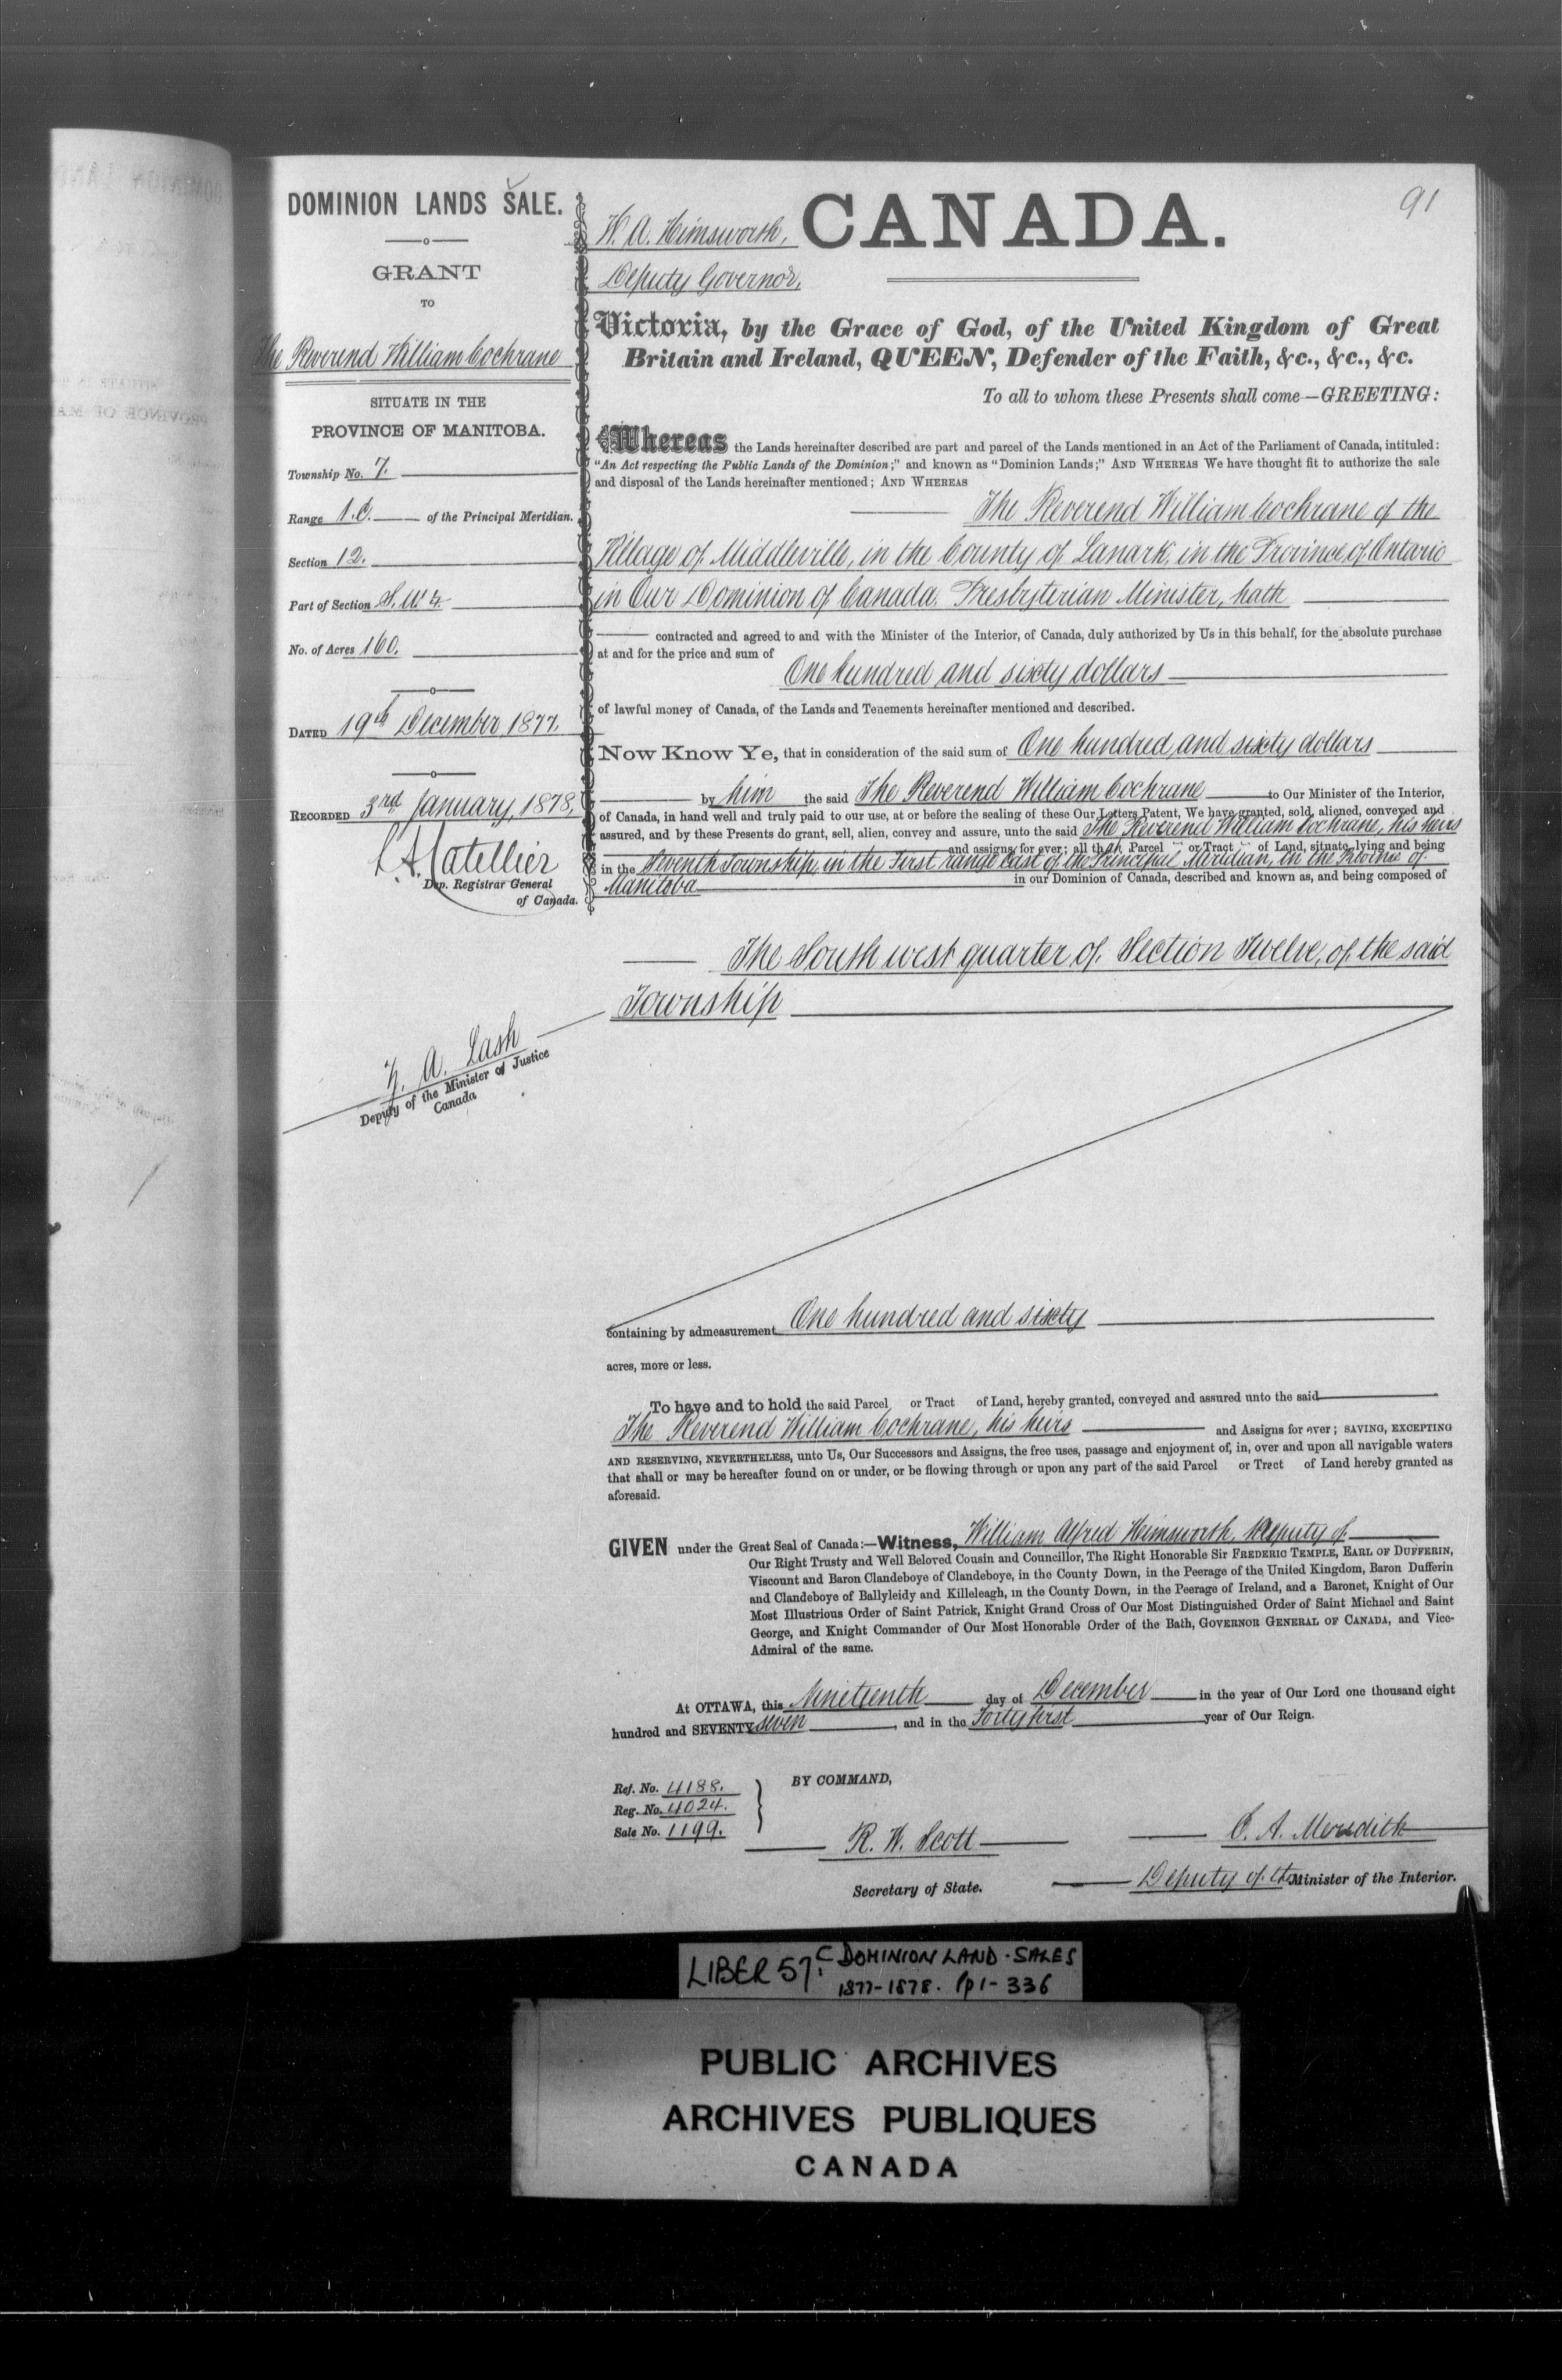 91
DOMINION LANDS SALE.
GRANT
TO
The Reverend William Cochrane
SITUATE IN THE
PROVINCE OF MANITOBA.
Township No. 7.
Range 1.E. of the Principal Meridian.
Section 12.
Part of Section S.W.¼
No. of Acres 160.
DATED 19th December, 1877.
RECORDED 3rd January, 1878,
L. A. Catellier
Dep. Registrar General
of Canada.
Z. A. Lash
Deputy of the Minister of Justice
Canada
W. A. Himsworth,
Deputy Governor,
CANADA.
Victoria, by the Grace of God, of the United Kingdom of Great
Britain and Ireland, QUEEN, Defender of the Faith, &c., &c., &c.
To all to whom these Presents shall come—GREETING:
Whereas the Lands hereinafter described are part and parcel of the Lands mentioned in an Act of the Parliament of Canada, intituled:
"An Act respecting the Public Lands of the Dominion;" and known as "Dominion Lands;" AND WHEREAS We have thought fit to authorize the sale
and disposal of the Lands hereinafter mentioned; AND WHEREAS
The Reverend William Cochrane of the
Village of Middleville, in the County of Lanark, in the Province of Ontario
in Our Dominion of Canada, Presbyterian Minister, hath
contracted and agreed to and with the Minister of the Interior, of Canada, duly authorized by Us in this behalf, for the absolute purchase
at and for the price and sum of
One hundred and sixty dollars
of lawful money of Canada, of the Lands and Tenements hereinafter mentioned and described.
Now Know Ye, that in consideration of the said sum of One hundred and sixty dollars
by him the said The Reverend William Cochrane to Our Minister of the Interior,
of Canada, in hand well and truly paid to our use, at or before the sealing of these Our Letters Patent, We have granted, sold, aliened, conveyed and
assured, and by these Presents do grant, sell, alien, convey and assure, unto the said The Reverend William Cochrane, his heirs
and assigns for ever; all that Parcel or Tract of Land, situate, lying and being
in the Seventh Township, in the First range East of the Principal Meridian, in the Province of
Manitoba in our Dominion of Canada, described and known as, and being composed of
The South west quarter of Section Twelve, of the said
Township
containing by admeasurement One hundred and sixty
acres, more or less.
To have and to hold the said Parcel or Tract of Land, hereby granted, conveyed and assured unto the said
The Reverend William Cochrane, his heirs and Assigns for ever; SAVING, EXCEPTING
AND RESERVING, NEVERTHELESS, unto Us, Our Successors and Assigns, the free uses, passage and enjoyment of, in, over and upon all navigable waters
that shall or may be hereafter found on or under, or be flowing through or upon any part of the said Parcel or Tract of Land hereby granted as
aforesaid.
GIVEN under the Great Seal of Canada:—Witness, William Alfred Himsworth, Deputy of
Our Right Trusty and Well Beloved Cousin and Councillor, The Right Honorable Sir FREDERIC TEMPLE, EARL OF DUFFERIN,
Viscount and Baron Clandeboye of Clandeboye, in the County Down, in the Peerage of the United Kingdom, Baron Dufferin
and Clandeboye of Ballyleidy and Killeleagh, in the County Down, in the Peerage of Ireland, and a Baronet, Knight of Our
Most Illustrious Order of Saint Patrick, Knight Grand Cross of Our Most Distinguished Order of Saint Michael and Saint
George, and Knight Commander of Our Most Honorable Order of the Bath, GOVERNOR GENERAL OF CANADA, and Vice-
Admiral of the same.
At OTTAWA, this Nineteenth day of December in the year of Our Lord one thousand eight
hundred and SEVENTY seven, and in the Forty first year of Our Reign.
Ref. No. 4188.
Reg. No. 4024.
Sale No. 1199.
BY COMMAND,
R. W. Scott
Secretary of State.
E. A. Meredith
Deputy of the Minister of the Interior.
LIBER 57. C DOMINION LAND - SALES
1877-1878. pp 1-336
PUBLIC ARCHIVES
ARCHIVES PUBLIQUES
CANADA